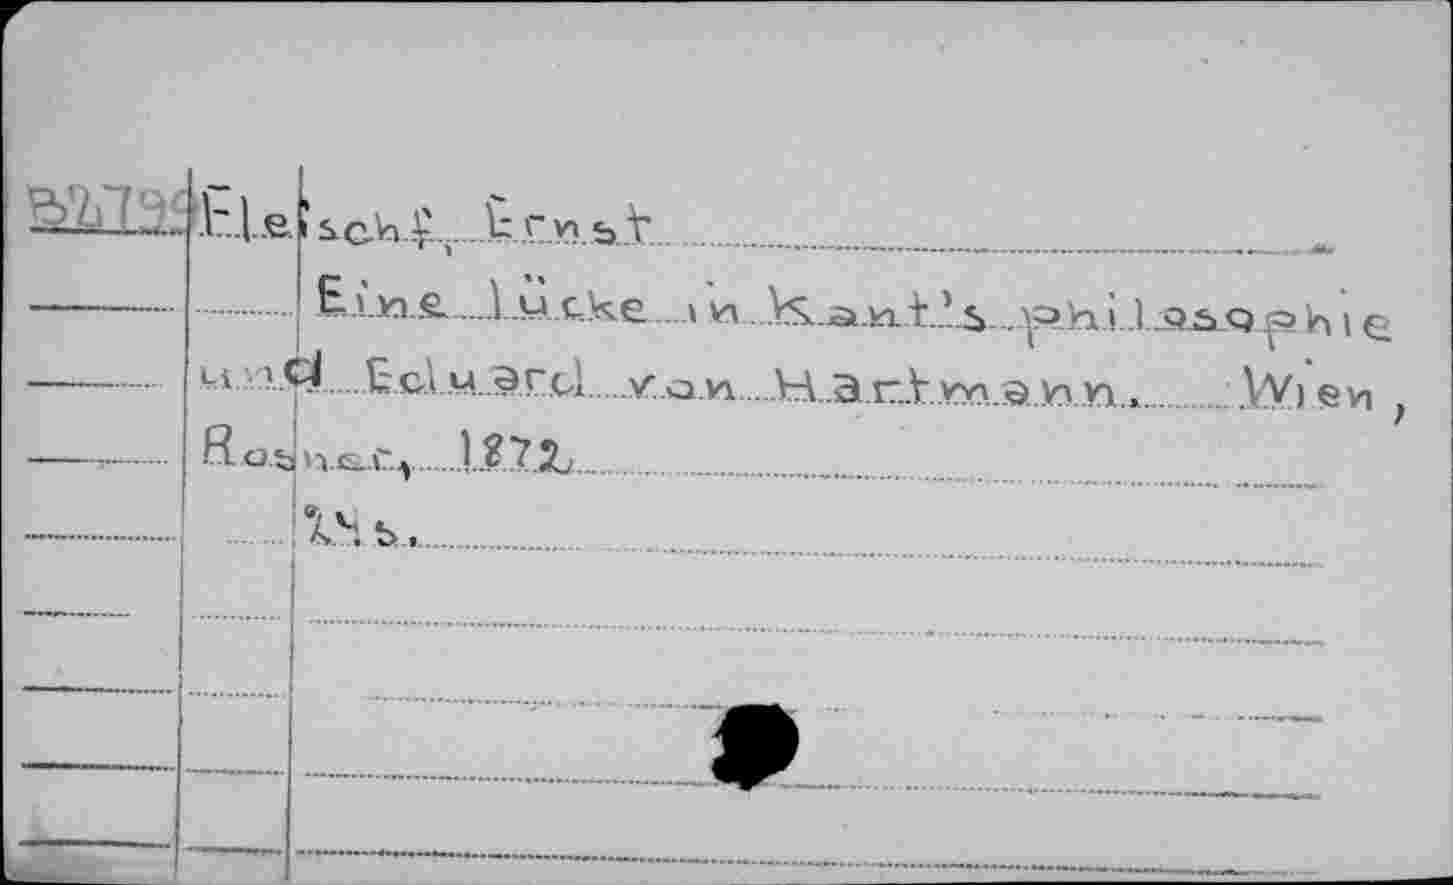 Fleischl, Ernst
Eine lücke in Kant's philosophie
und Eduard von Hartmann, Wien,
Rosner, 1872
24 s.